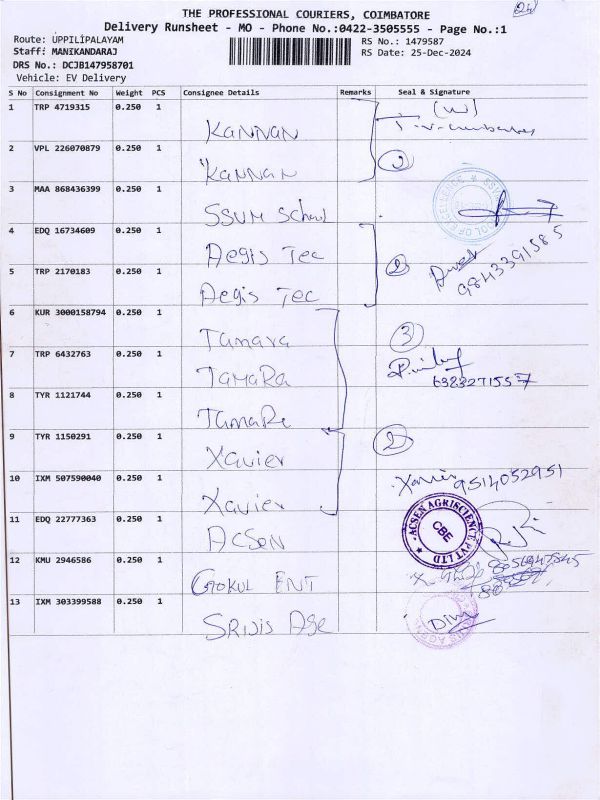 THE PROFESSIONAL COURIERS, COIMBATORE
Delivery Runsheet - MO - Phone No.:0422-3505555 - Page No.:1
Route: UPPILIPALAYAM
RS No.: 1479587
Staff: MANIKANDARAJ
RS Date: 25-Dec-2024
DRS No.: DCJB147958701
Vehicle: EV Delivery
S No Consignment No Weight PCS Consignee Details Remarks Seal & Signature
1 TRP 4719315 0.250 1 KANNAN
2 VPL 226070879 0.250 1 KANNAN 2
3 MAA 868436399 0.250 1 SSVM School
4 EDQ 16734609 0.250 1 Aegis Tec 2
9843391585
5 TRP 2170183 0.250 1 Aegis Tec
6 KUR 3000158794 0.250 1 Tamara 3
7 TRP 6432763 0.250 1 TAMARA
6383271557
8 TYR 1121744 0.250 1 TAMARA
9 TYR 1150291 0.250 1 Xavier 2
10 IXM 507590040 0.250 1 Xavier Xavier 9514052951
11 EDQ 22777363 0.250 1 ACSEN ACSEN AGRISCIENCE PVT LTD CBE
12 KMU 2946586 0.250 1 GOKUL ENT
13 IXM 303399588 0.250 1